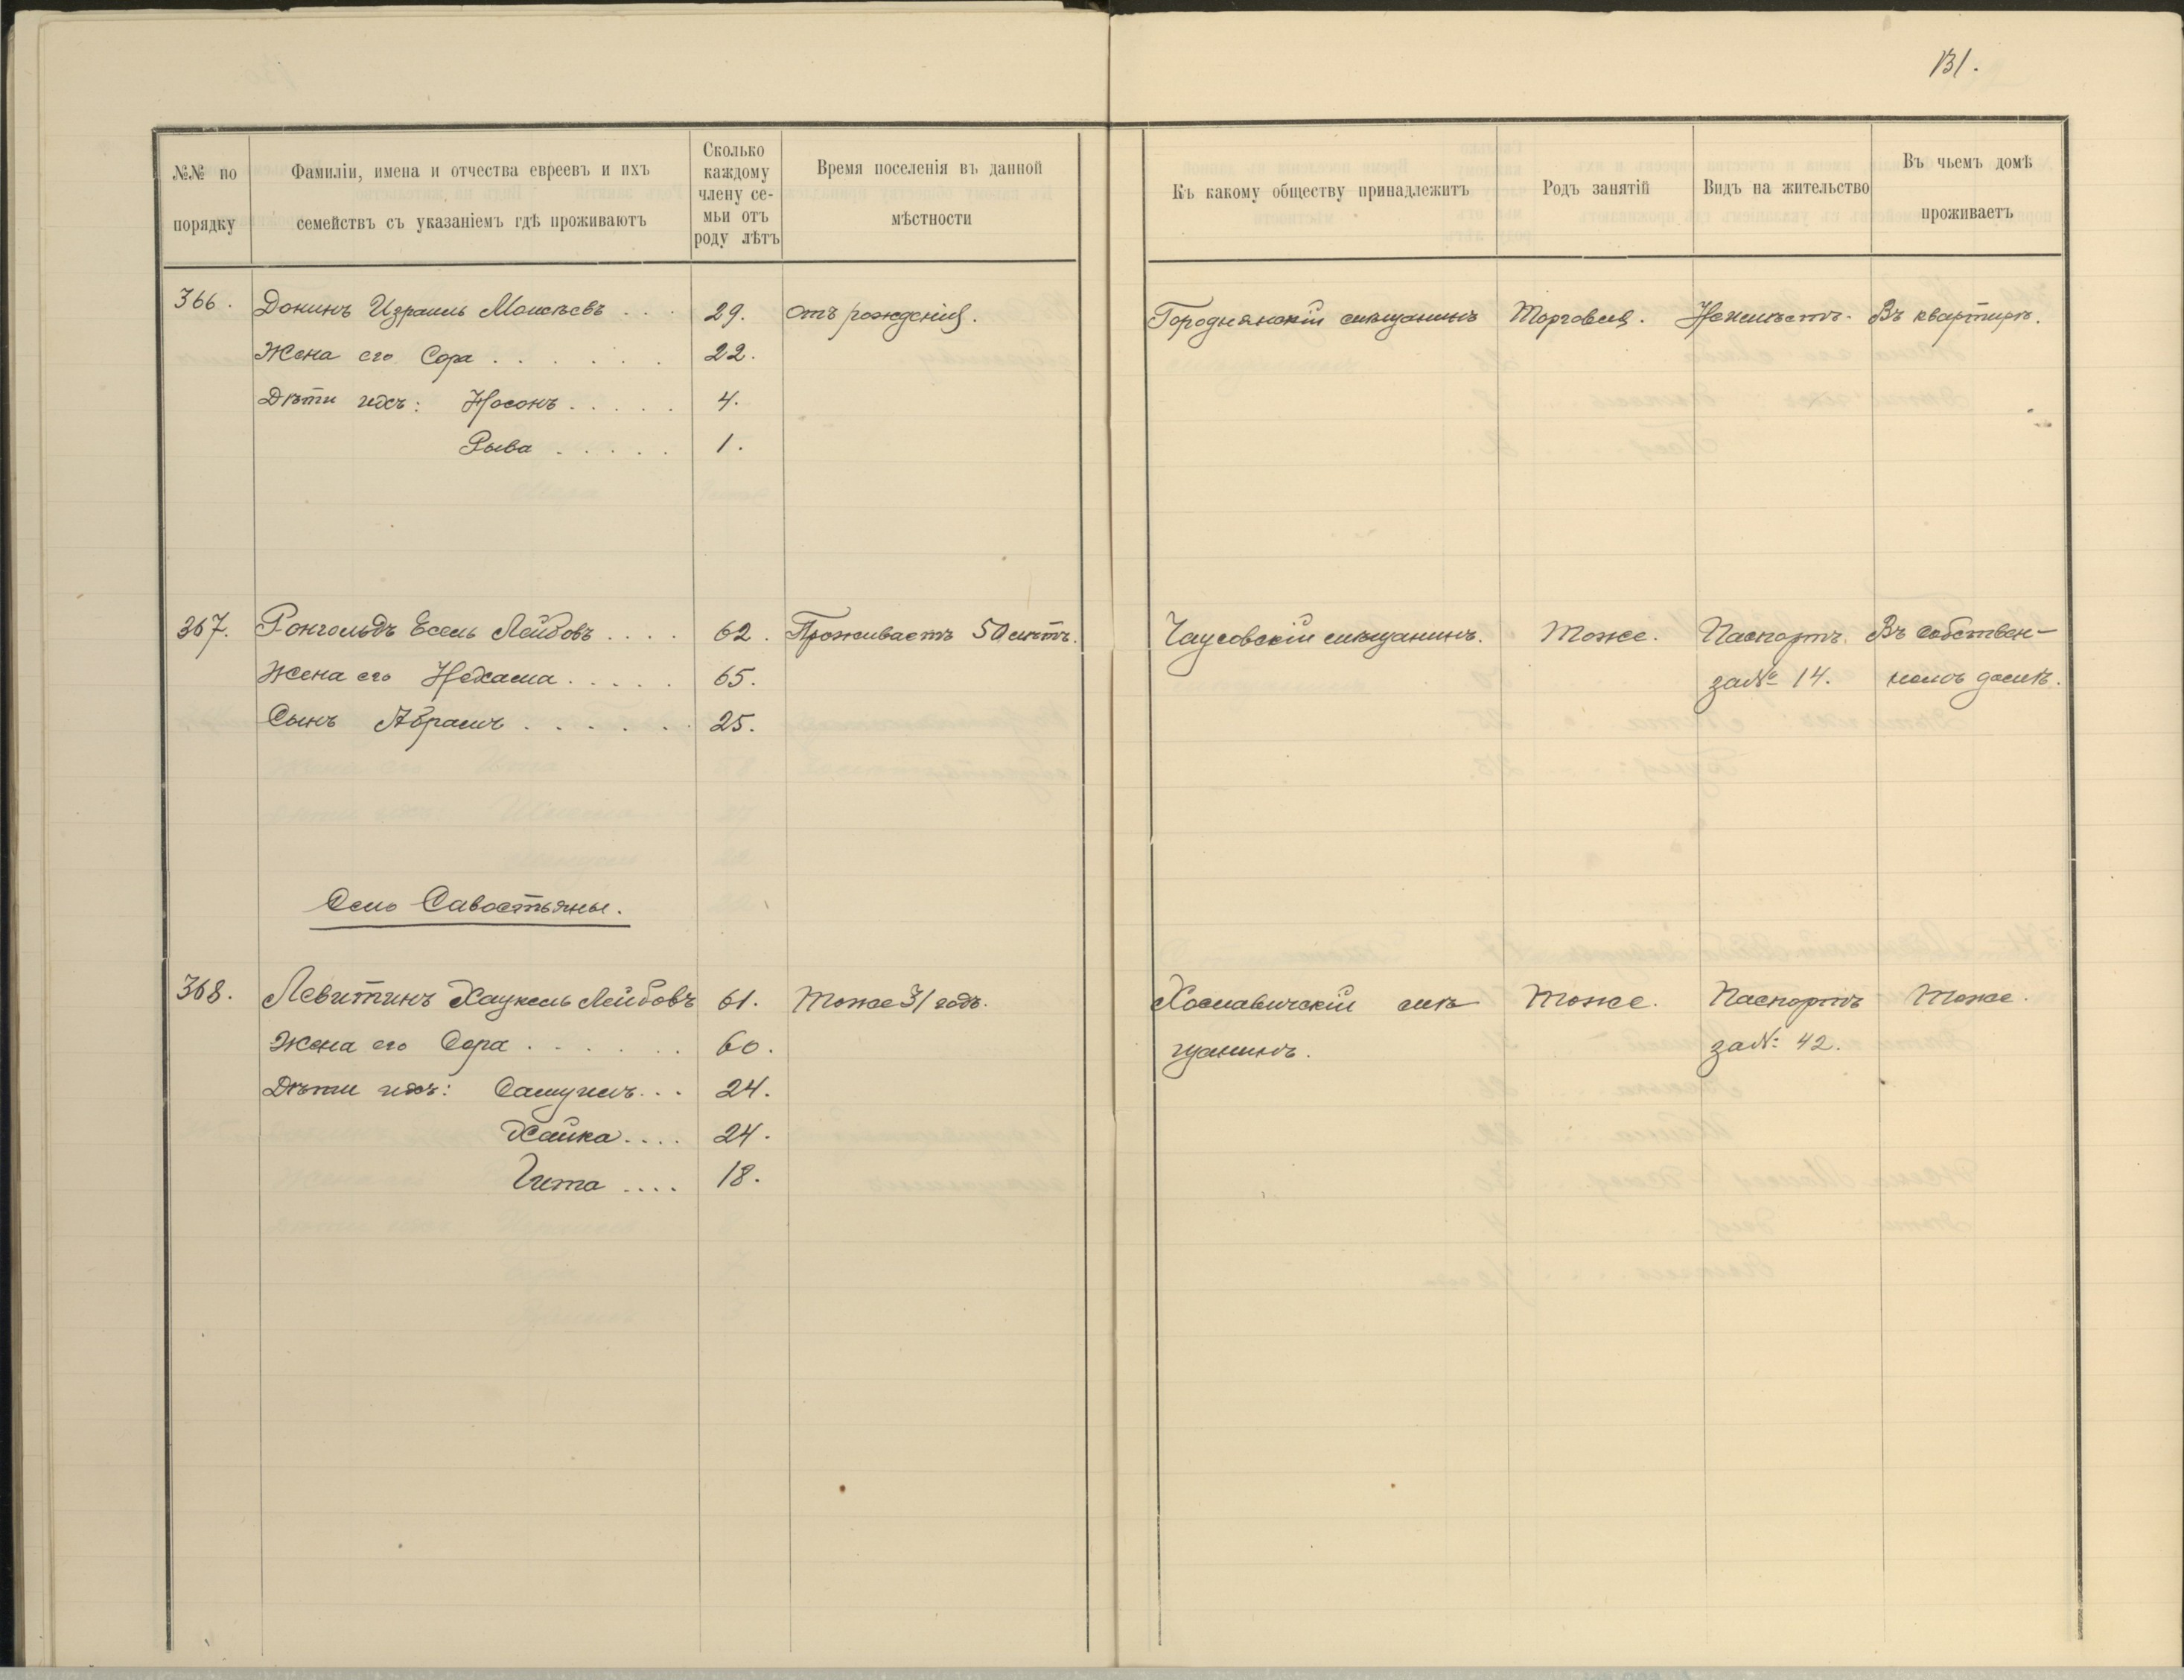 131.
№№ по порядку
Фамиліи, имена и отчества евреевъ и ихъ семействъ съ указаніемъ гдѣ проживаютъ
Сколько каждому члену семьи отъ роду лѣтъ
Время поселенія въ данной мѣстности
Къ какому обществу принадлежитъ
Родъ занятій
Видъ на жительство
Въ чьемъ домѣ проживаетъ
366. Донинъ Израиль Моисѣевъ . . . 29. отъ рожденія. Городнянскій мѣщанинъ Торговля. Неимѣетъ. Въ квартирѣ.
Жена его Сора . . . . . . 22.
Дѣти ихъ: Носонъ . . . . . 4.
Рыва . . . . . 1.
367. Ронгольдъ Есель Лейбовъ . . . . 62. Проживаетъ 50 лѣтъ. Чаусовскій мѣщанинъ. Тоже. Паспортъ Въ собствен-
Жена его Нехама . . . . . 65. за № 14. номъ домѣ.
Сынъ Абрамъ . . . . . . 25.
Село Савостьяны.
368. Левитинъ Хацкель Лейбовъ 61. Тоже 31 годъ. Хославичскій мѣ Тоже. Паспортъ Тоже.
Жена его Сора . . . . . . 60. щанинъ. за №: 42.
Дѣти ихъ: Самуилъ . . . 24.
Хайка . . . . 24.
Гита . . . . 18.